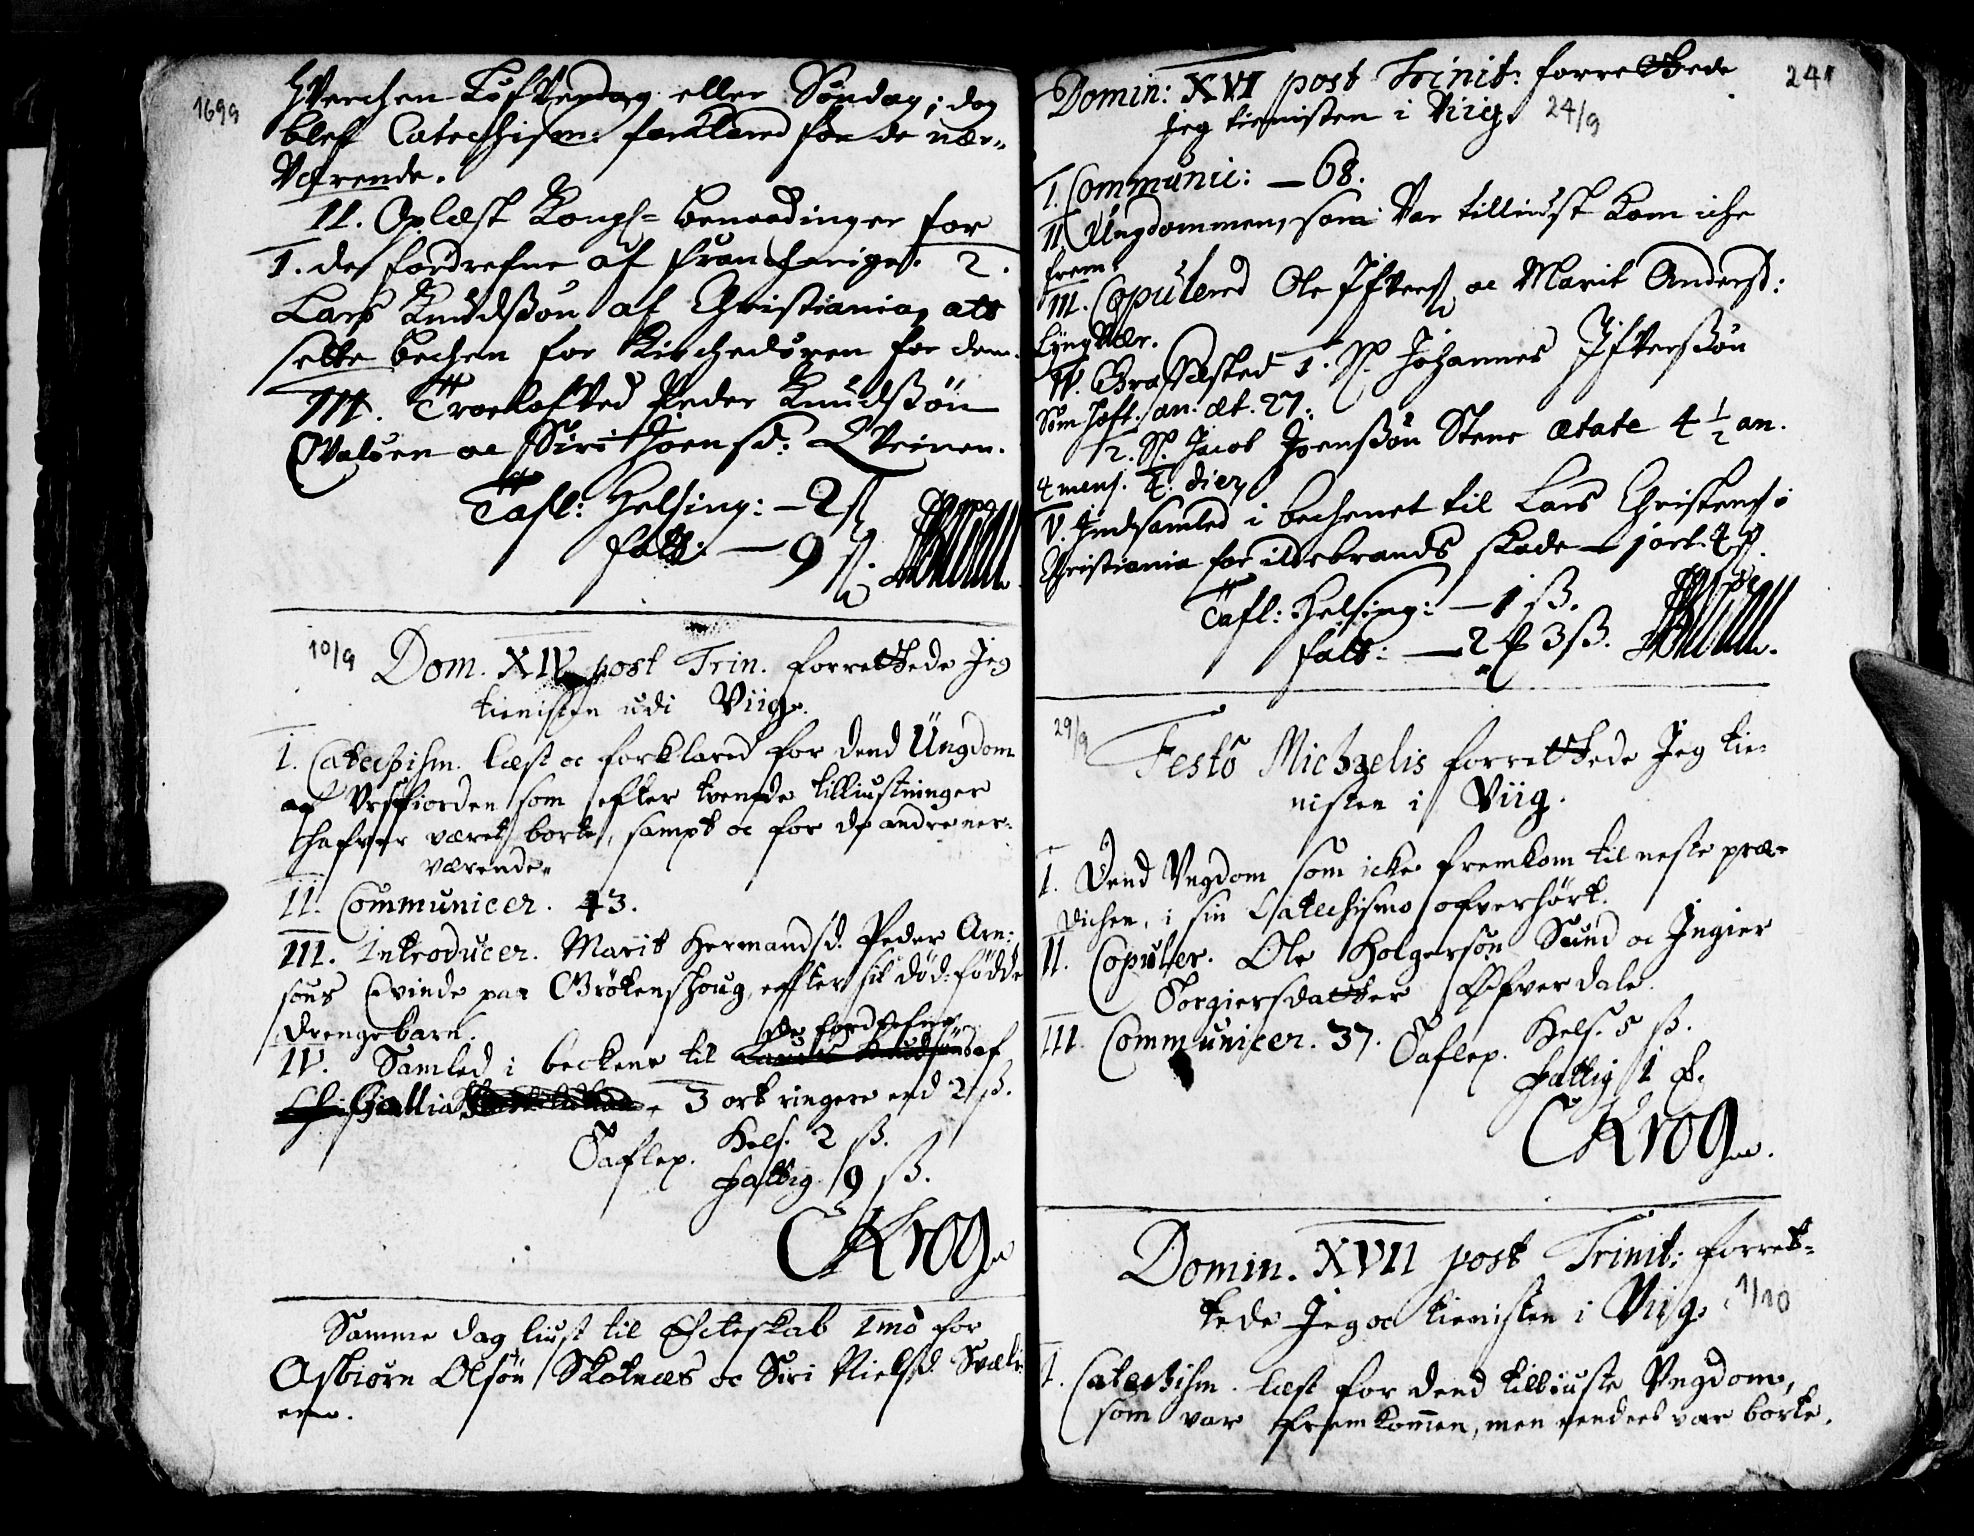 1699
hverchen Løfverdag eller Søndag; dog
blef Catechism: forklared for de nær-
Værende.
II. Oplæst Kongl= benaadinger for
1. de fordrefne af Franckeriges. 2.
Lars Knudsøn af Christiania, att
sette bechen for Kirchedøren for dem.
III. Troelofved Peder Knudsøn
Qvaløen oc Siri Joensd: Qveinen.
Tafl: Helsing: — 2 ß
fatt: — 9 ß.
10/9
Dom. XIV post Trin. forrettede Jeg
tienisten udi Viig.
I. Catechism. læst oc forklared for dend Ungdom
af Ursfiorden som efter trende tilliustninger
hafver været borte, sampt oc for de andre ner-
værende.
II. Communicer. 43.
III. Introducer. Marit Hermandsd. Peder Arn-
søns Qvinde paa Grøtenshoug, effter sit død-fødde
drengebarn.
de fordrefne
IV. Samled i beckene til Laurits Knudsøns af
Gallia 3 ort ringere end 2 ß.
Taflep. Hels. 2 ß.
fattig. 9 ß.
CKrog
Samme dag liust til Ecteskab 1mo for
Asbiørn Olsøn Skotnes oc Siri Nielsd. Svæl-
em.
241
Domin: XVI post Trinit: forrettede
jeg tienisten i Viig. 24/9
I. Communic: — 68.
II. Ungdommen, som Var tilliust kom iche
frem.
III. Copulered Ole Ifvers oc Marit Andersd:
Lyngvær.
IV. Græsfested 1. S. Johannes Ifversøn
Sømhoft. an. æt. 27.
2. S. Jacob Joensøn Stene ætate 4 1/2 an.
4 mens. 4. dier
V. Indsamled i bechenet til Lars Christens i
Christiania for ildebrands skade — 1 ort. 4 ß.
Tafl: Helsing: — 1 ß.
fatt: — 2 ℔ 3 ß.
29/9
Festo Michaelis forrettede Jeg tie-
nisten i Viig.
I. Dend Ungdom som icke fremkom til neste præ-
dichen, i sin Catechismo ofverhørt.
II. Copuler. Ole Holgersøn Sund oc Ingier
Torgiersdatter Øfverdale.
III. Communicer. 37. Taflep. Hels. 5 ß.
fattig 1 ℔.
CKrog
Domin. XVII post Trinit: forret-
tede Jeg oc tienisten i Viig. 1/10
I. Catechism. læst for dend tilliuste Ungdom,
som var fremkommen, men eendeel var borte.